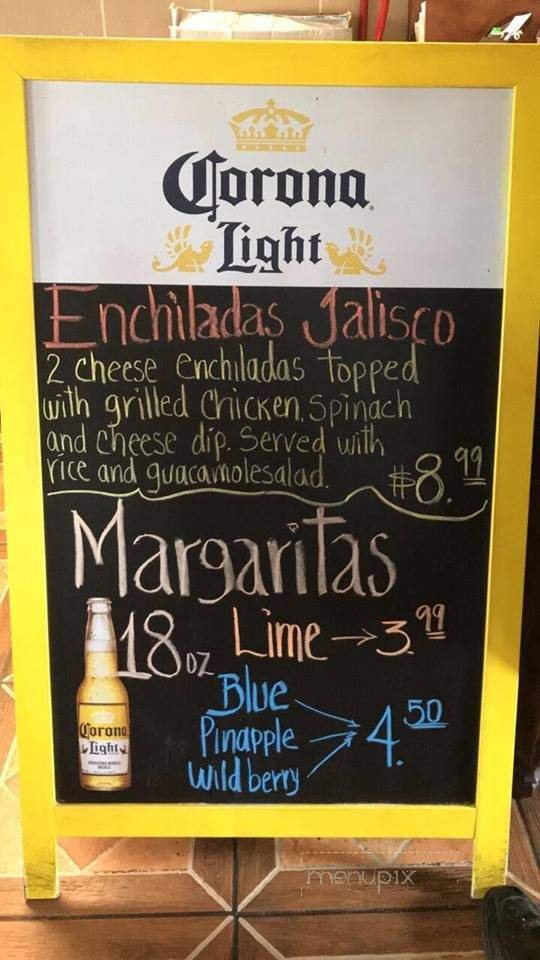 Corona
Light
Enchiladas Jalisco
2 cheese enchiladas topped
with grilled Chicken, Spinach
and cheese dip. Served with
rice and guacamolesalad.
$8.99
Margaritas
18oz Lime → 3.99
Blue
Pinapple → 4.50
Wild berry
Corona
Light
menupix